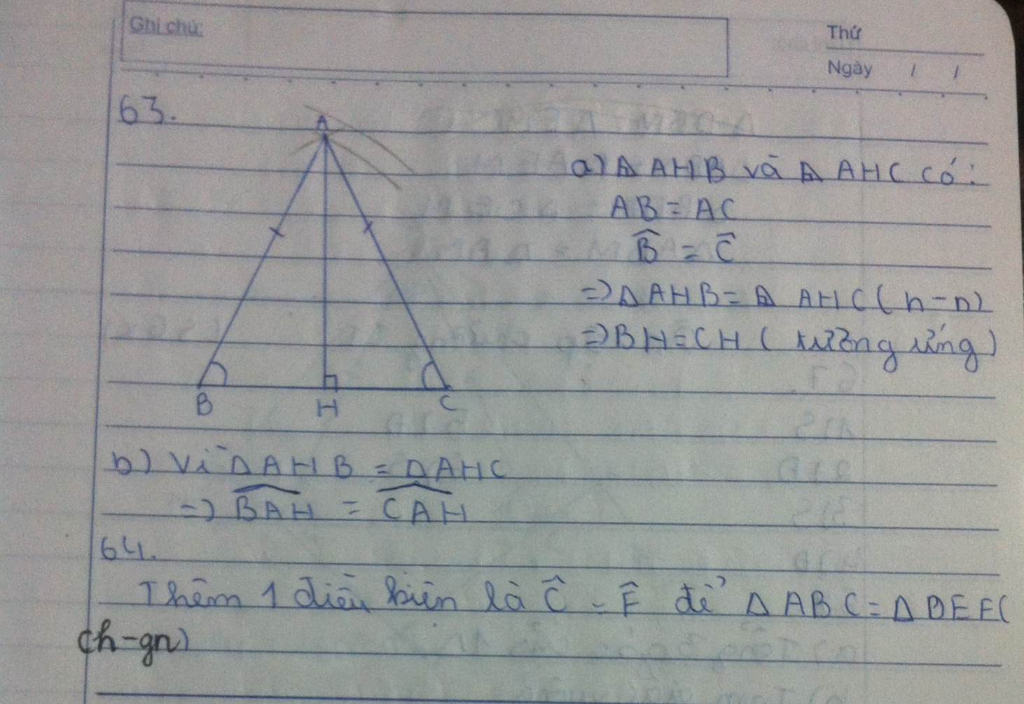 Ghi chú:
Thứ
Ngày / /
63.
A
B
H
C
a) Δ AHB và Δ AHC có:
AB = AC
B̂ = Ĉ
=> Δ AHB = Δ AHC (h-n)
=> BH = CH (tương ứng)
b) Vì Δ AHB = Δ AHC
=> B̂AH = ĈAH
64.
Thêm 1 điều kiện là Ĉ = F̂ để Δ ABC = Δ DEF(
(h-gn)